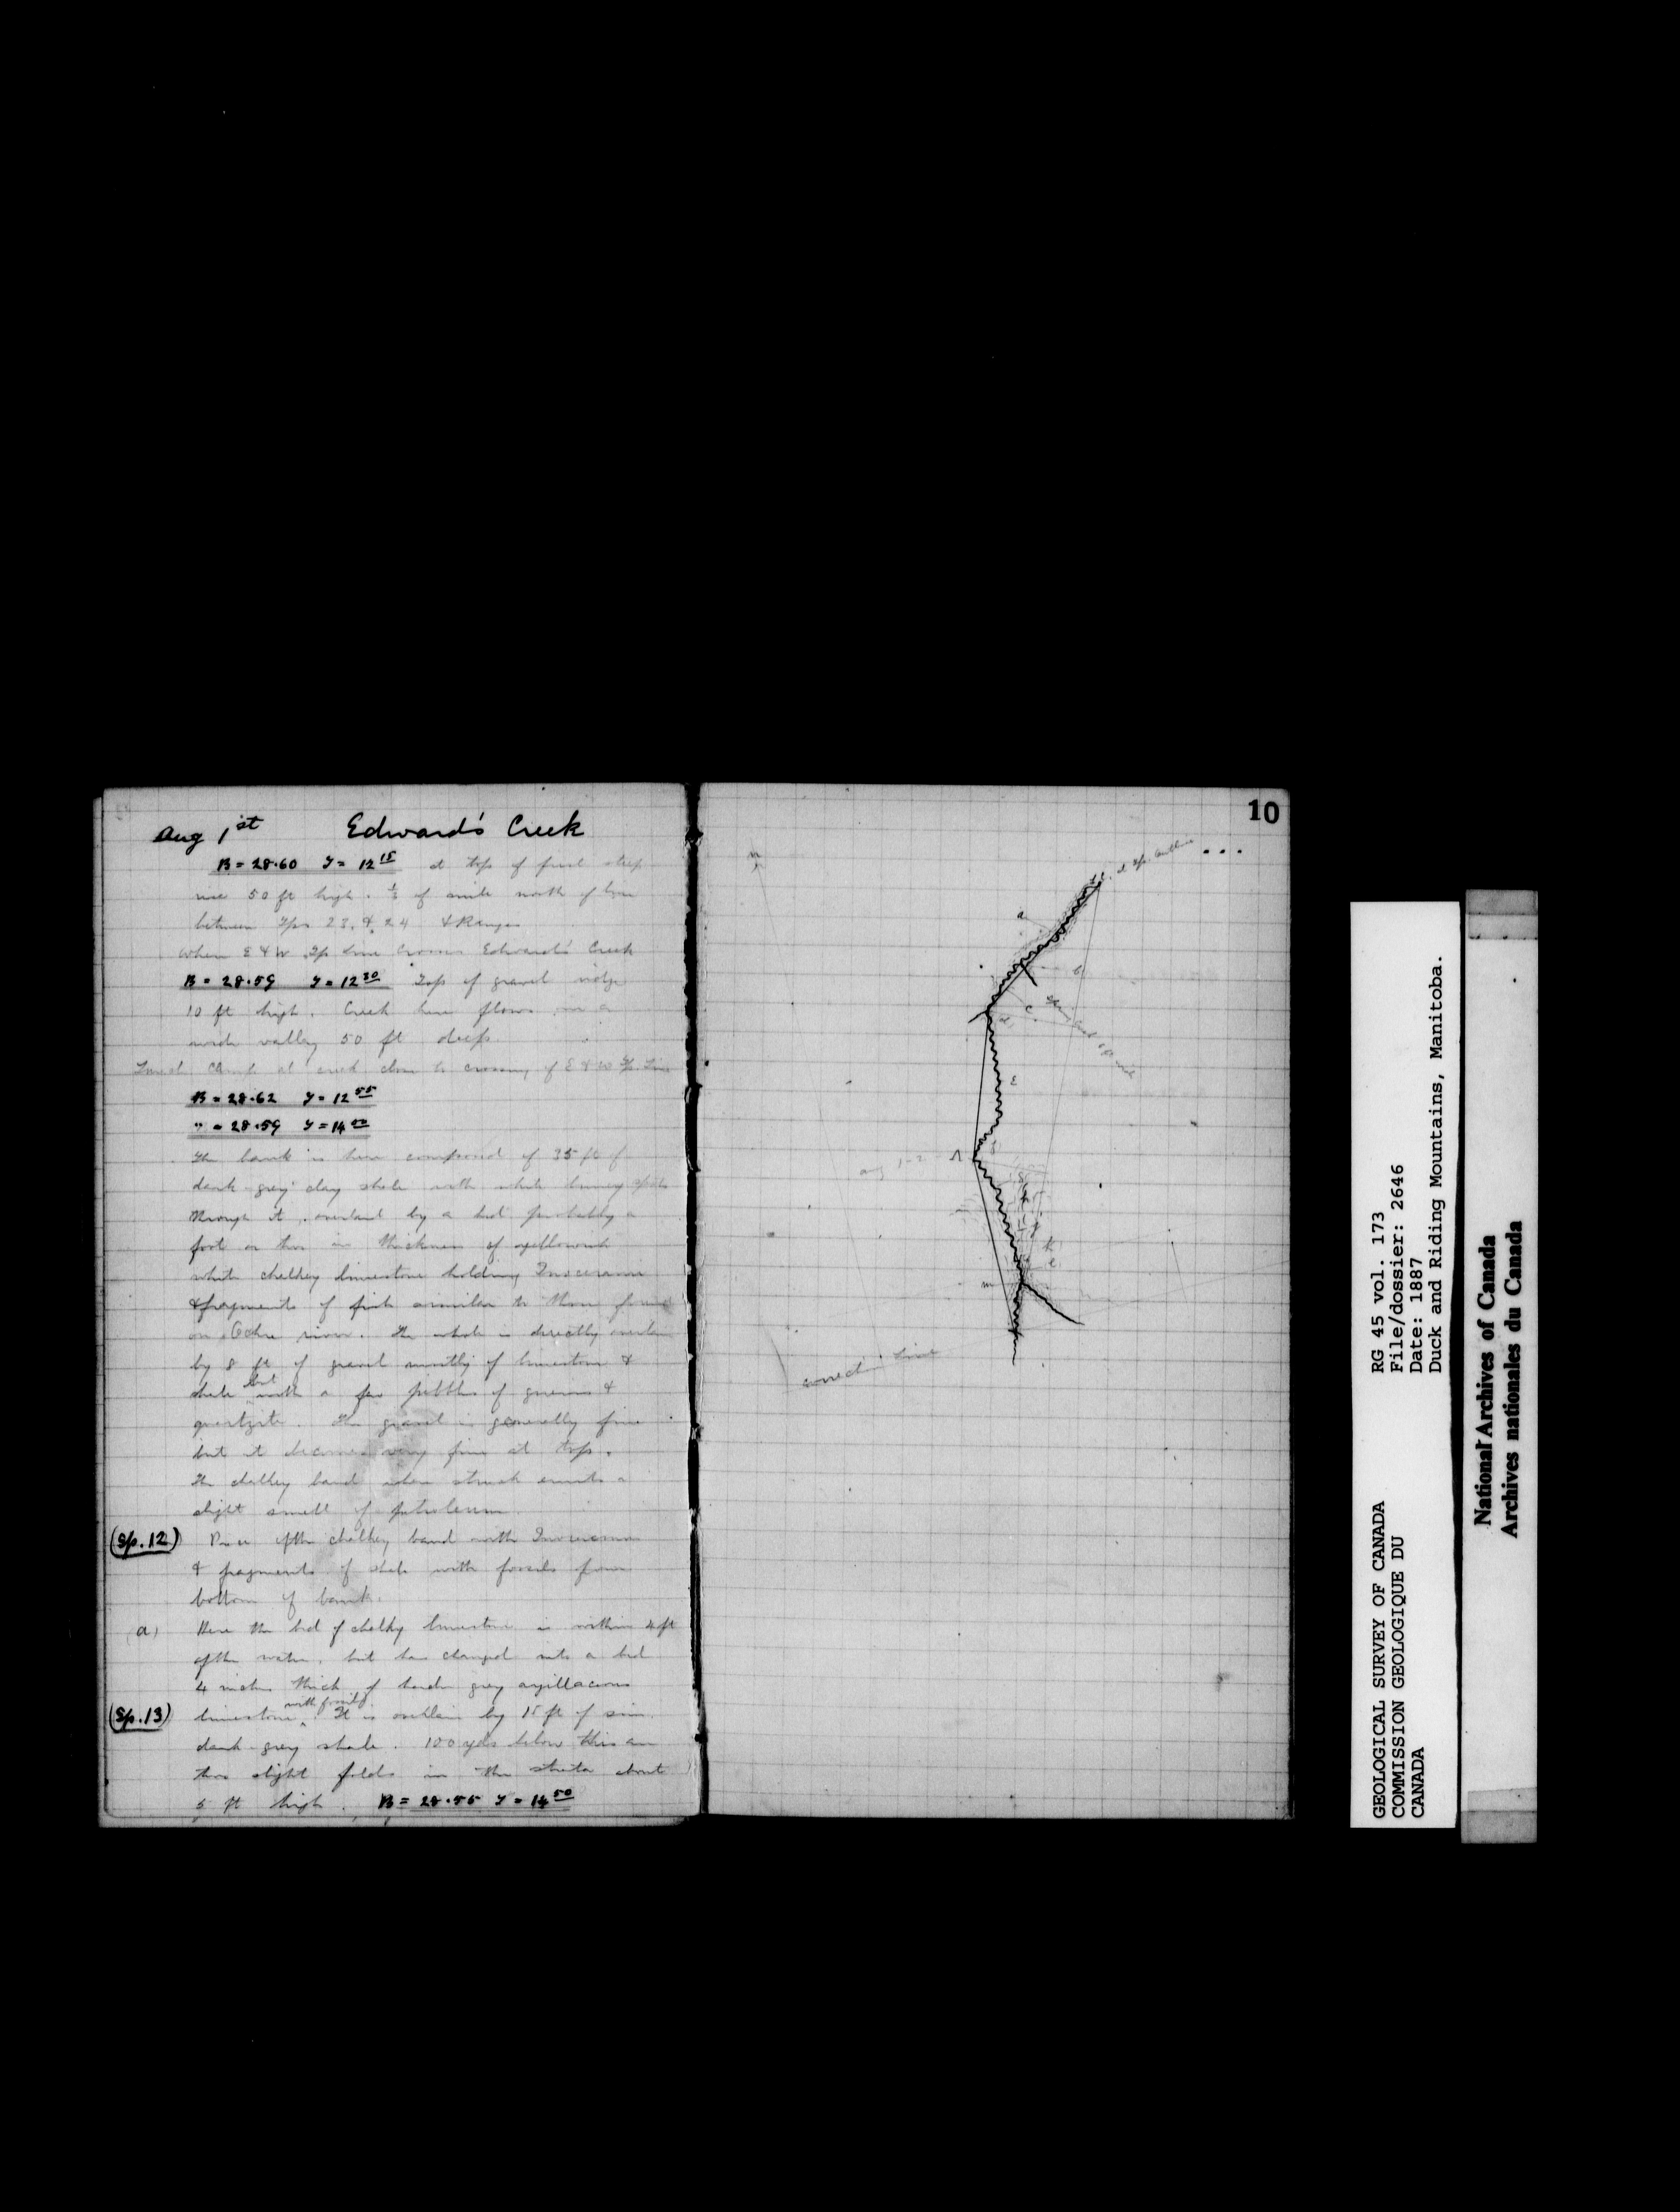 Aug 1st Edward's Creek
B = 28.60 T = 12 15 at top of first steep
rise 50 ft high. of a mile north of line
between Tps 23 & 24 & Ranges
where E & W Tp line crosses Edward's Creek
B = 28.59 T = 12 30 Top of gravel ridge
10 ft high. Creek here flows in a
wide valley 50 ft deep.
at creek close to crossing of E & W Tp. Line
B = 28.62 T = 12 55
" = 28.59 T = 14
The bank is here composed of 35 ft of
dark grey clay shale with white limey spots
through it, overlaid by a bed probably a
foot or thus in thickness of yellowish
white chalky limestone holding Inoceramus
& fragments of fish similar to those found
on Ochre river. The whole is directly overlain
by 8 ft of gravel mostly of limestone &
shale but with a few pebbles of gneiss &
quartzite. The gravel is generally fine
but it becomes very fine at top.
The chalky band when struck emits a
slight smell of petroleum.
(Sp. 12) Piece of the chalky band with Inoceramus
& fragments of shale with fossils from
bottom of bank.
(a) Here the bed of chalky limestone is within 4 ft
of the water, but has changed into a bed
4 inches thick of harder grey argillaceous
(Sp. 13) limestone with fossils. It is overlain by 15 ft of sim.
dark grey shale. 100 yds below this are
two slight folds in the strata about
5 ft high. B = 28.55 T = 14 50
10
a
b
c
d
E
Aug 1-2
g
h
k
e
m
correction line
GEOLOGICAL SURVEY OF CANADA
COMMISSION GEOLOGIQUE DU
CANADA
RG 45 vol. 173
File/dossier: 2646
Date: 1887
Duck and Riding Mountains, Manitoba.
National Archives of Canada
Archives nationales du Canada